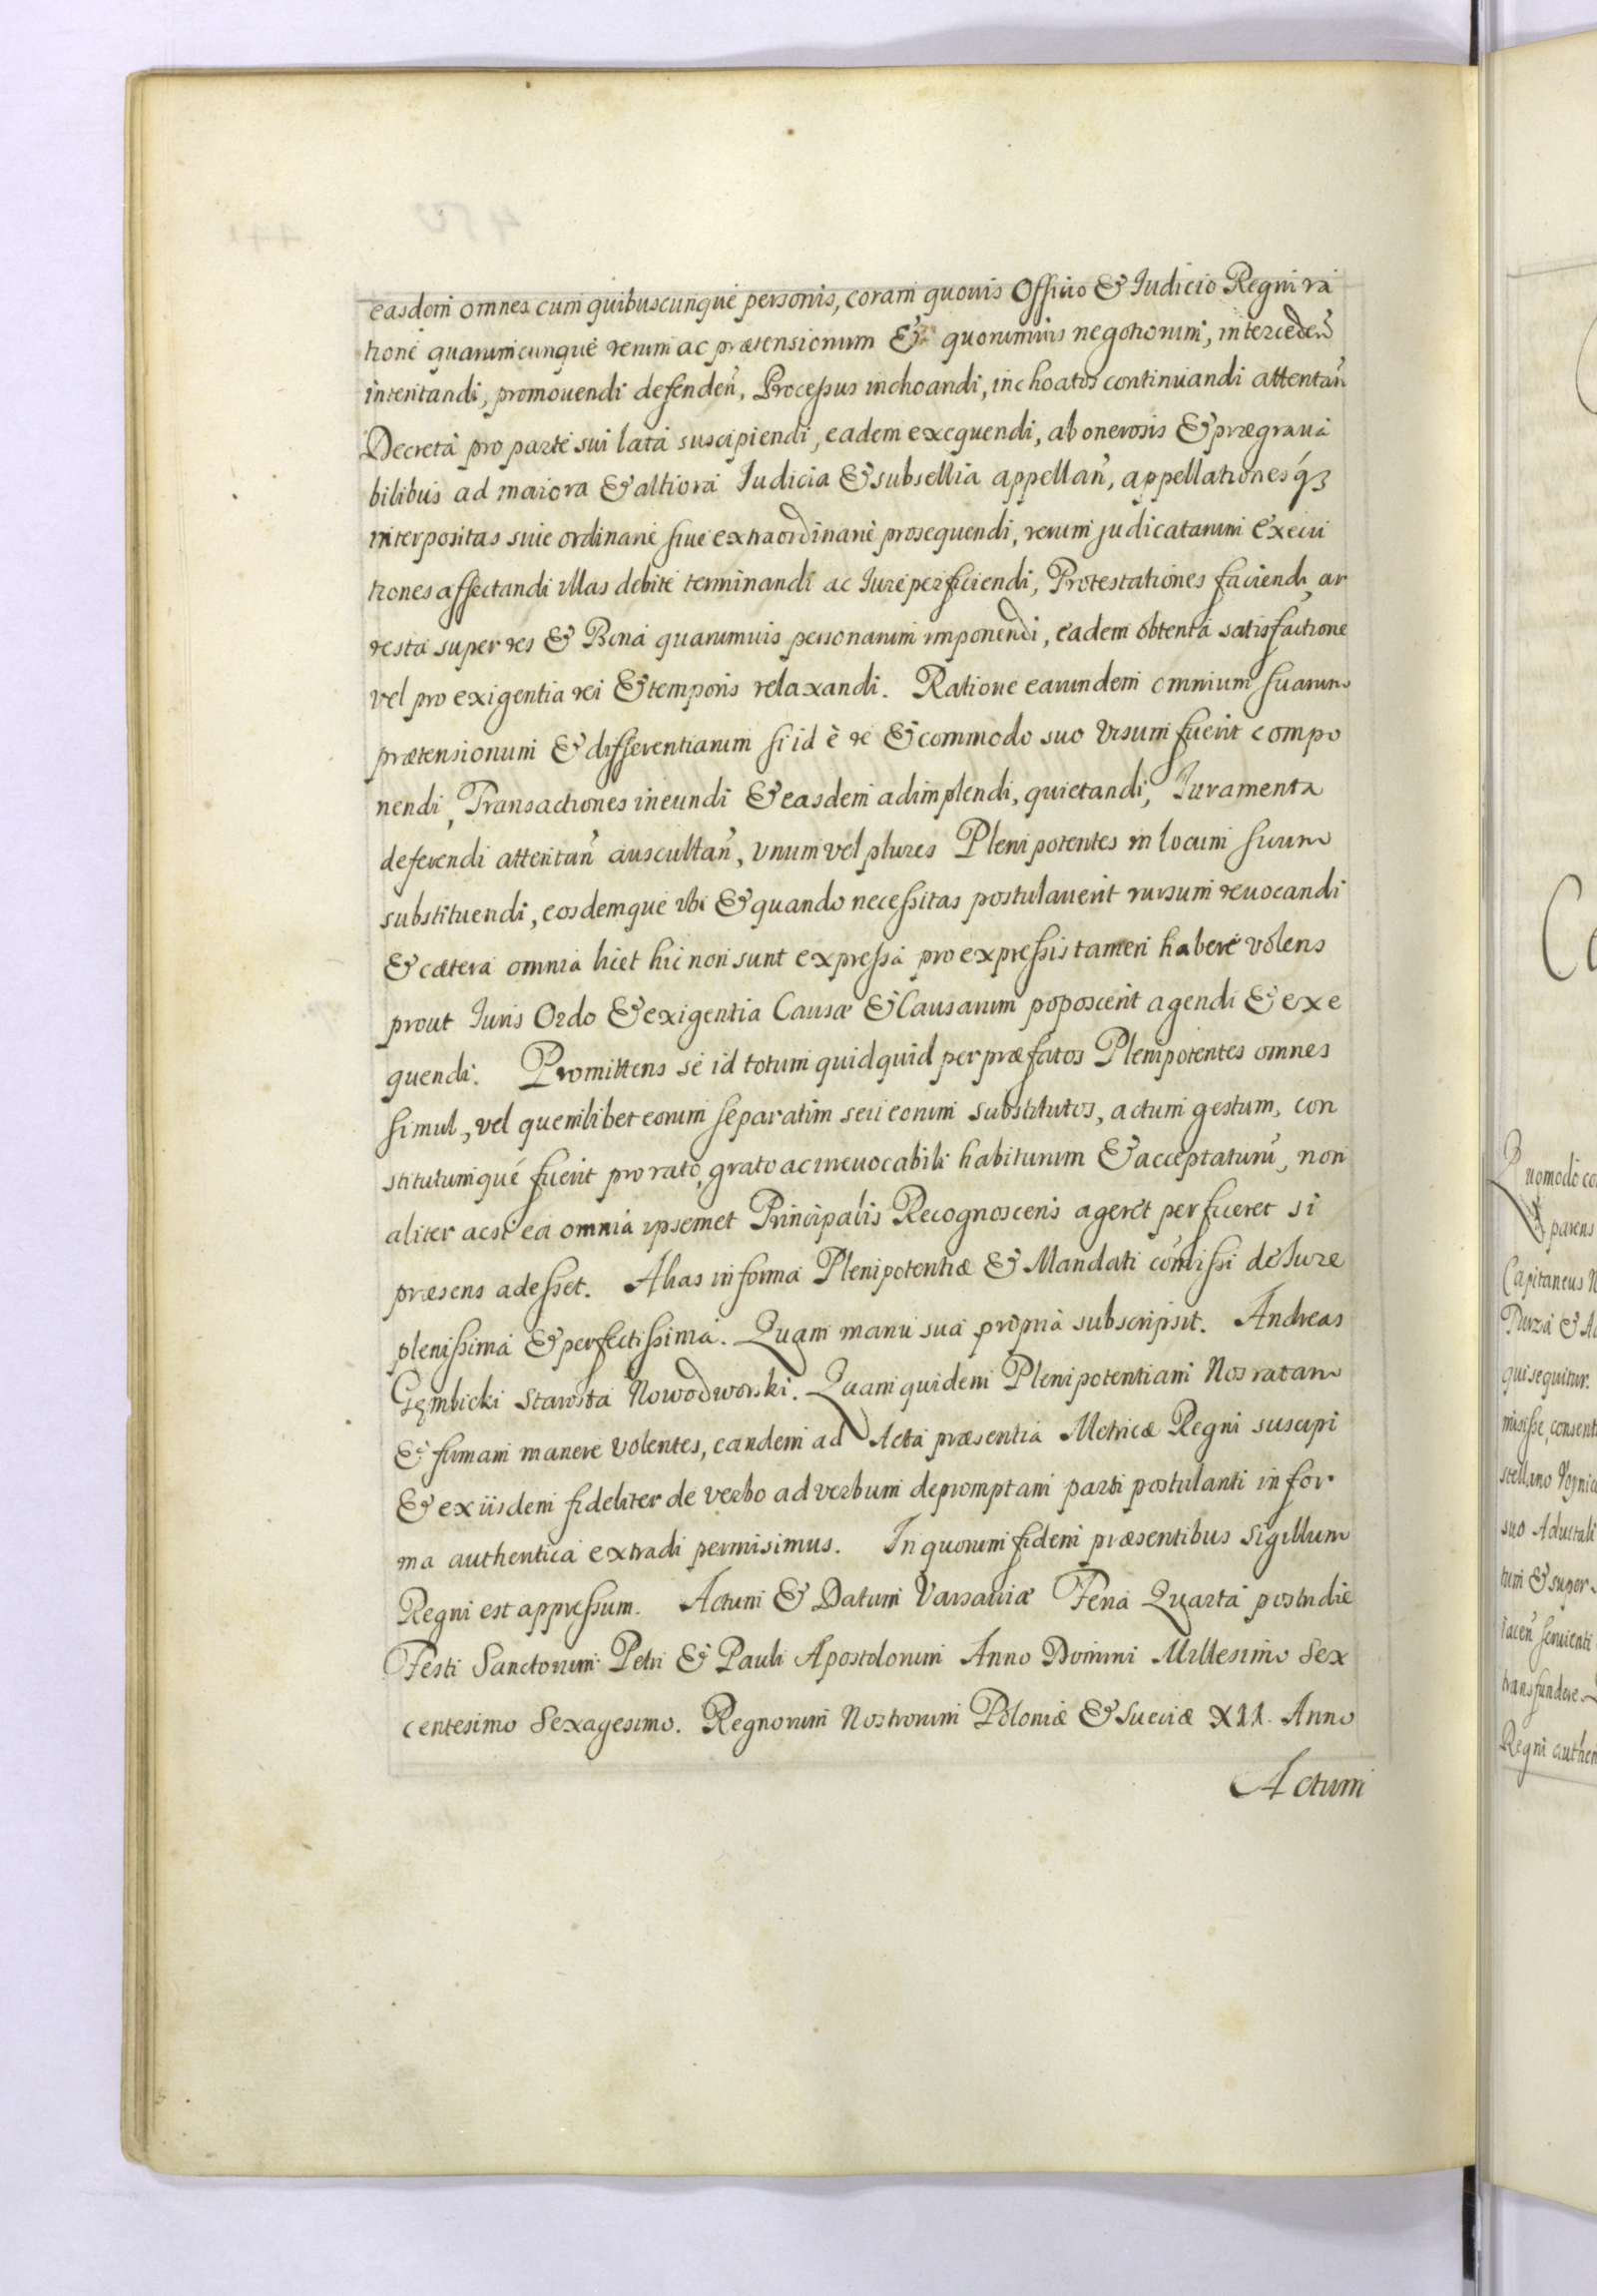 easdem omnes cum quibuscunque personis, coram quouis Officio & Iudicio Regni ra
tione quarumcunque rerum ac prætensionum & quorumuis negotiorum, intercedeñ
intentandi, promouendi defendeñ, Processus inchoandi, inchoatos continuandi attentañ
Decreta pro parte sui lata suscipiendi, eadem exequendi, ab onerosis & prægraua
bilibus ad maiora & altiora Iudicia & subsellia appellañ, appellationesq́ꝫ
interpositas siue ordinarie siue extraordinarie prosequendi, rerum judicatarum execu
tiones affectandi illas debite terminandi ac Iure perficiendi, Protestationes faciendi, ar
resta super res & Bona quarumuis personarum imponendi, eadem obtenta satisfactione
vel pro exigentia rei & temporis relaxandi. Ratione earundem omnium suarum
prætensionum & differentiarum si id è re & commodo suo visum fuerit compo
nendi, Transactiones ineundi & easdem adimplendi, quietandi, Iuramenta
deferendi attentañ auscultañ, vnum vel plures Plenipotentes in locum suum
substituendi, eosdemque vbi & quando necessitas postulauerit rursum reuocandi
& cætera omnia licet hic non sunt expressa pro expressis tamen habere volens
prout Iuris Ordo & exigentia Causæ & Causarum poposcerit agendi & exe
quendi. Promittens se id totum quidquid per præfatos Plenipotentes omnes
simul, vel quemlibet eorum separatim seu eorum substitutos, actum gestum, con
stitutumqué fuerit pro rato, grato ac irreuocabili habiturum & acceptaturũ, non
aliter acsi ea omnia ipsemet Principalis Recognoscens ageret perficeret si
præsens adesset. Alias in forma Plenipotentiæ & Mandati com̃issi de Iure
plenissima & perfectissima. Quam manu sua propria subscripsit. Andreas
Gębicki Starosta Nowodworski. Quam quidem Plenipotentiam Nos ratam
& firmam manere volentes, eandem ad Acta præsentia Metricæ Regni suscipi
& ex iisdem fideliter de verbo ad verbum depromptam parti postulanti in for
ma authentica extradi permisimus. In quorum fidem præsentibus Sigillum
Regni est appressum. Actum & Datum Varsauiæ Feria Quarta postridie
Festi Sanctorum Petri & Pauli Apostolorum Anno Domini Millesimo Sex
centesimo Sexagesimo. Regnorum Nostrorum Poloniæ & Sueciæ XII. Anno
Actum